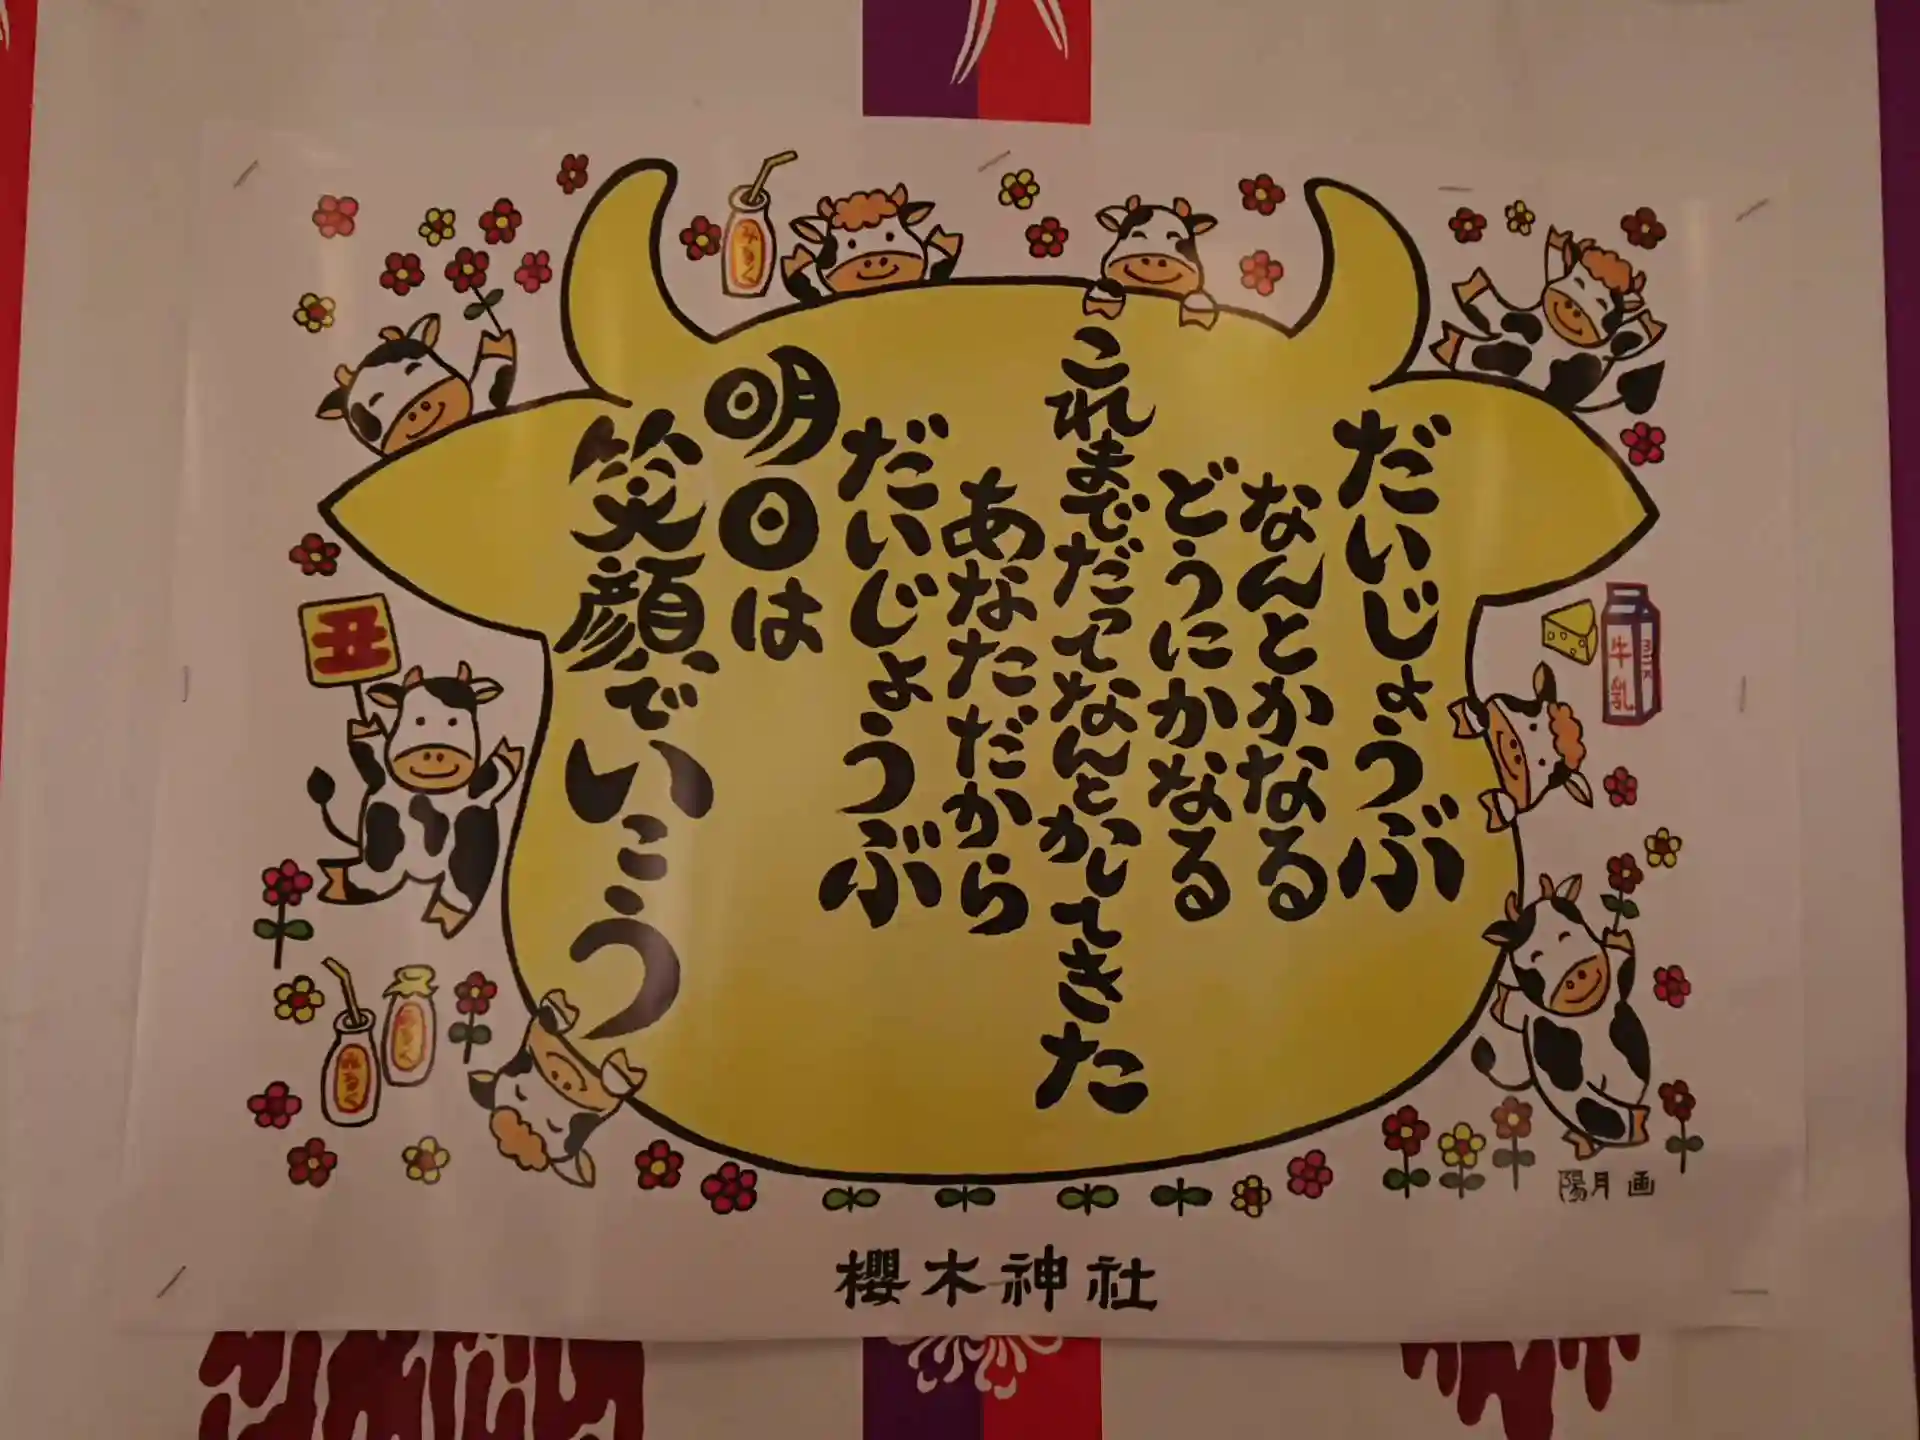 だいじょうぶ
なんとかなる
どうにかなる
これまでだってなんとかしてきた
あなただから
だいじょうぶ
明日は
笑顔でいこう
みるく
丑
牛乳
MILK
みるく
みるく
陽月 画
櫻木神社